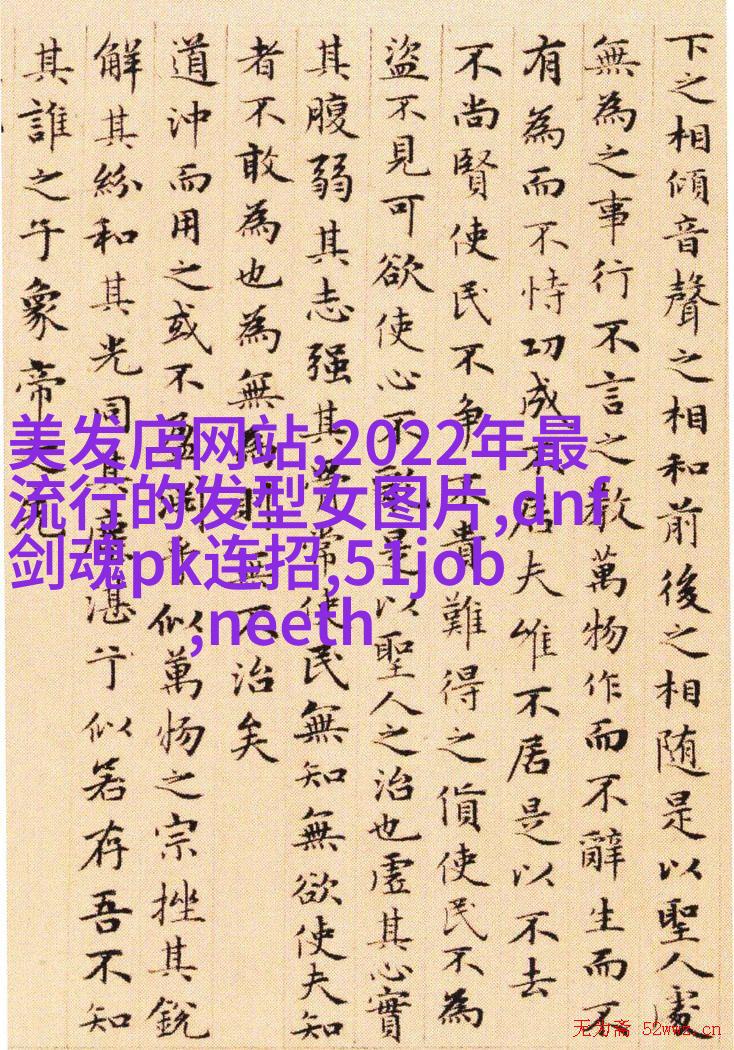 下之相傾音聲之相和前後之相随是以聖人處
無為之事行不言之教萬物作而不辭生而不
有為而不恃功成不居夫唯不居是以不去
不尚賢使民不争不貴難得之貨使民不為
盜不見可欲使心不亂是以聖人之治也虚其心實
其腹弱其志强其骨常使民無知無欲使夫知
者不敢為也為無為則無不治矣
道沖而用之或不盈淵乎似萬物之宗挫其銳
解其紛和其光同其塵湛乎似若存吾不知
其誰之子象帝之先
美发店网站,2022年最
流行的发型女图片,dnf
剑魂pk连招,51job
,neeth
无为斋 52wwz.cn